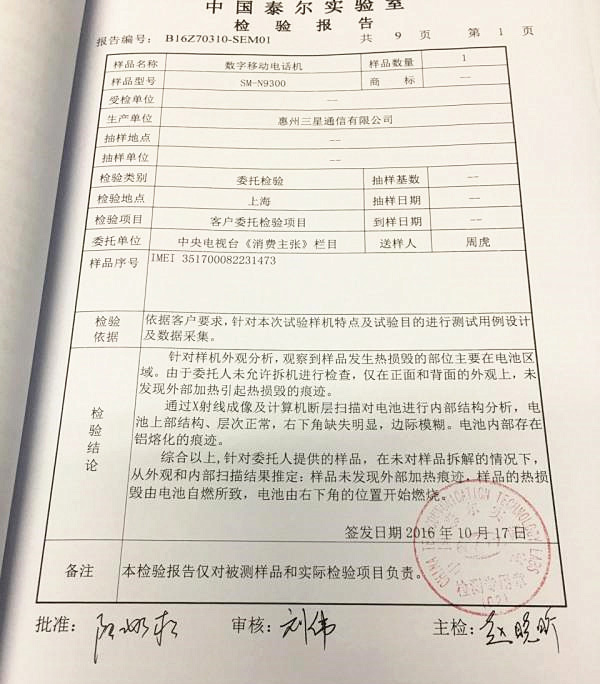 中国泰尔实验室
检 验 报 告
报告编号: B16Z70310-SEM01 共 9 页 第 1 页
样品名称 数字移动电话机 样品数量 1
样品型号 SM-N9300 商 标 --
受检单位 --
生产单位 惠州三星通信有限公司
抽样地点 --
抽样单位 --
检验类别 委托检验 抽样基数 --
检验地点 上海 抽样日期 --
检验项目 客户委托检验项目 到样日期 --
委托单位 中央电视台《消费主张》栏目 送样人 周虎
样品序号 IMEI 351700082231473
检验依据 依据客户要求,针对本次试验样机特点及试验目的进行测试用例设计
及数据采集。
检验结论 针对样机外观分析,观察到样品发生热损毁的部位主要在电池区
域。由于委托人未允许拆机进行检查,仅在正面和背面的外观上,未
发现外部加热引起热损毁的痕迹。
通过X射线成像及计算机断层扫描对电池进行内部结构分析,电
池上部结构、层次正常,右下角缺失明显,边际模糊。电池内部存在
铝熔化的痕迹。
综合以上,针对委托人提供的样品,在未对样品拆解的情况下,
从外观和内部扫描结果推定:样品未发现外部加热痕迹,样品的热损
毁由电池自燃所致,电池由右下角的位置开始燃烧。
签发日期 2016 年 10 月 17 日
备注 本检验报告仅对被测样品和实际检验项目负责。
批准: 审核: 刘伟 主检: 赵晓昕